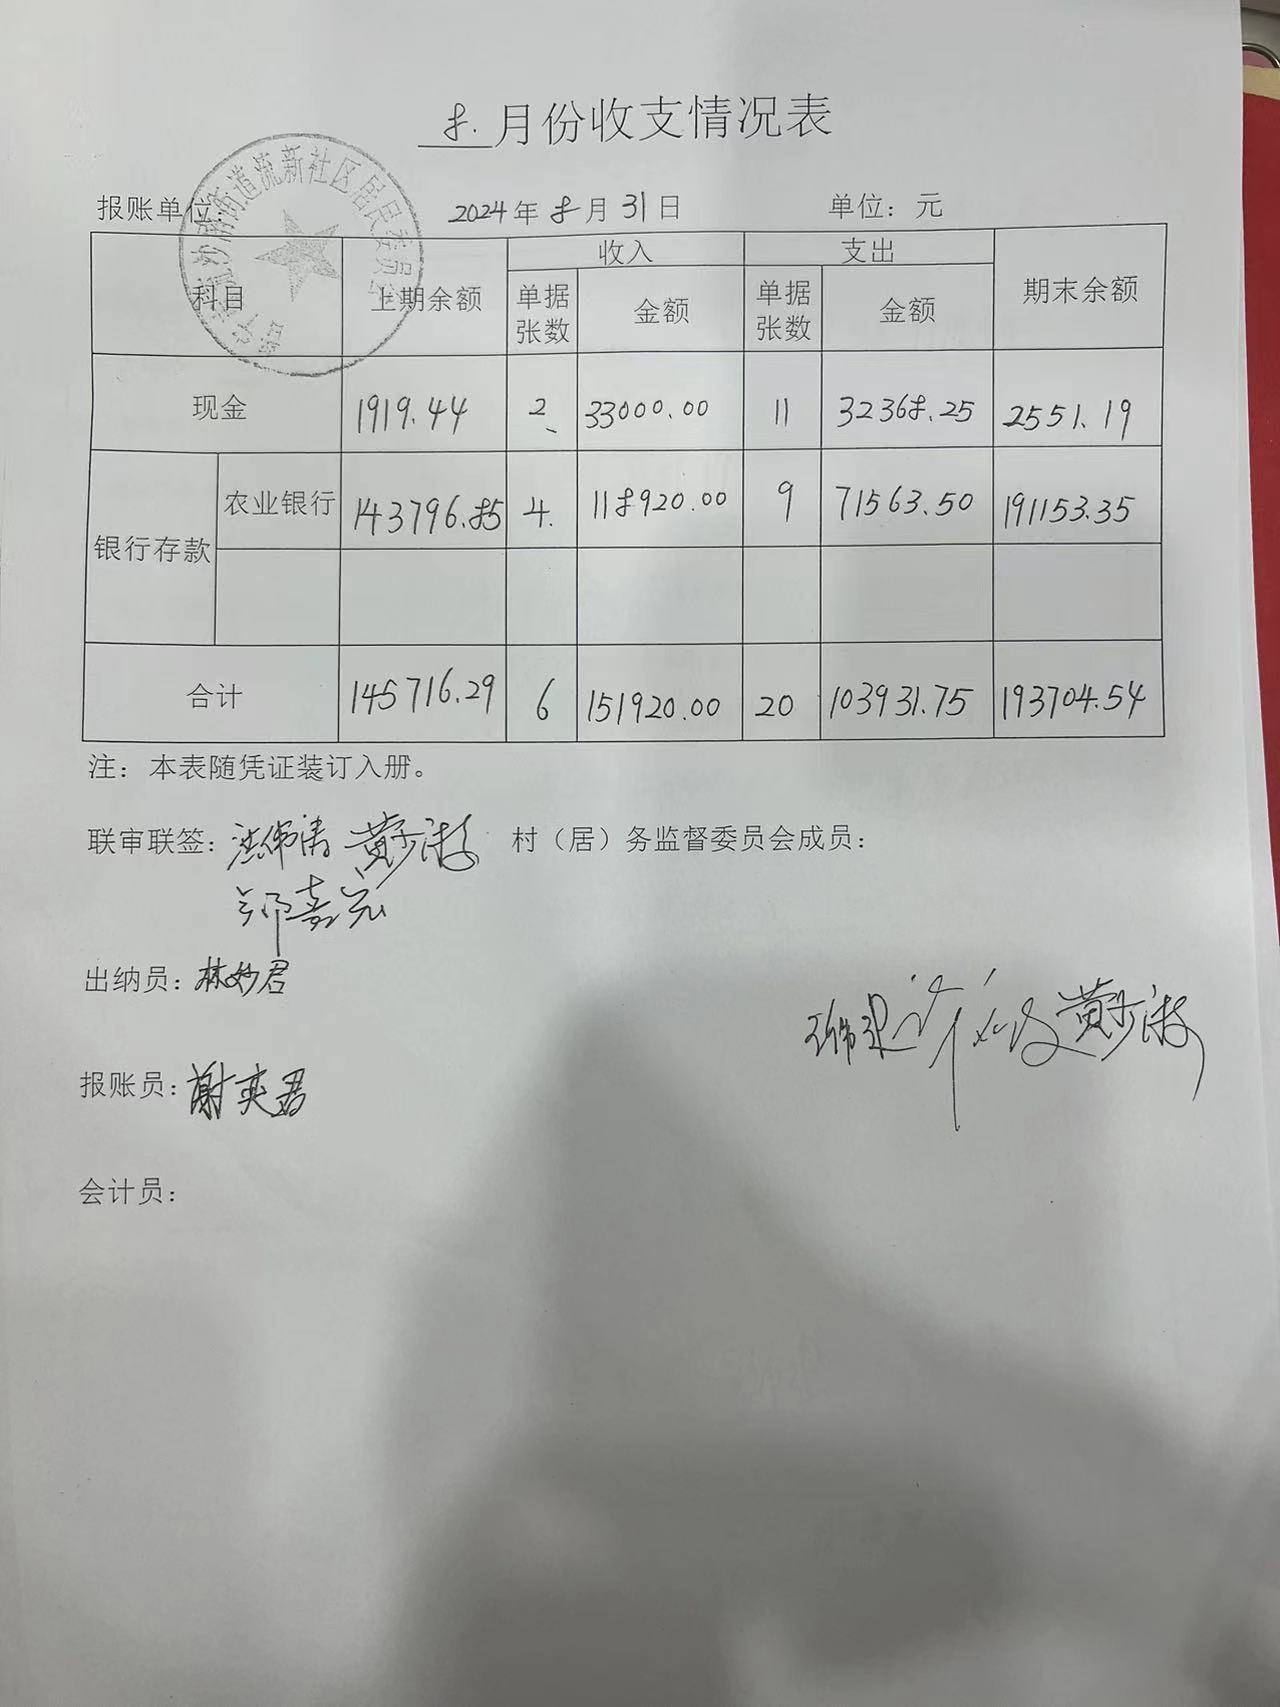 8.月份收支情况表
报账单位: 2024年8月31日 单位：元
科目 上期余额 收入 支出 期末余额
单据张数 金额 单据张数 金额
现金 1919.44 2 33000.00 11 32368.25 2551.19
银行存款 农业银行 143796.85 4. 118920.00 9 71563.50 191153.35
合计 145716.29 6 151920.00 20 103931.75 193704.54
注：本表随凭证装订入册。
联审联签： 村（居）务监督委员会成员：
出纳员：林妙君
报账员：谢奕君
会计员：
街道流新社区居民委员